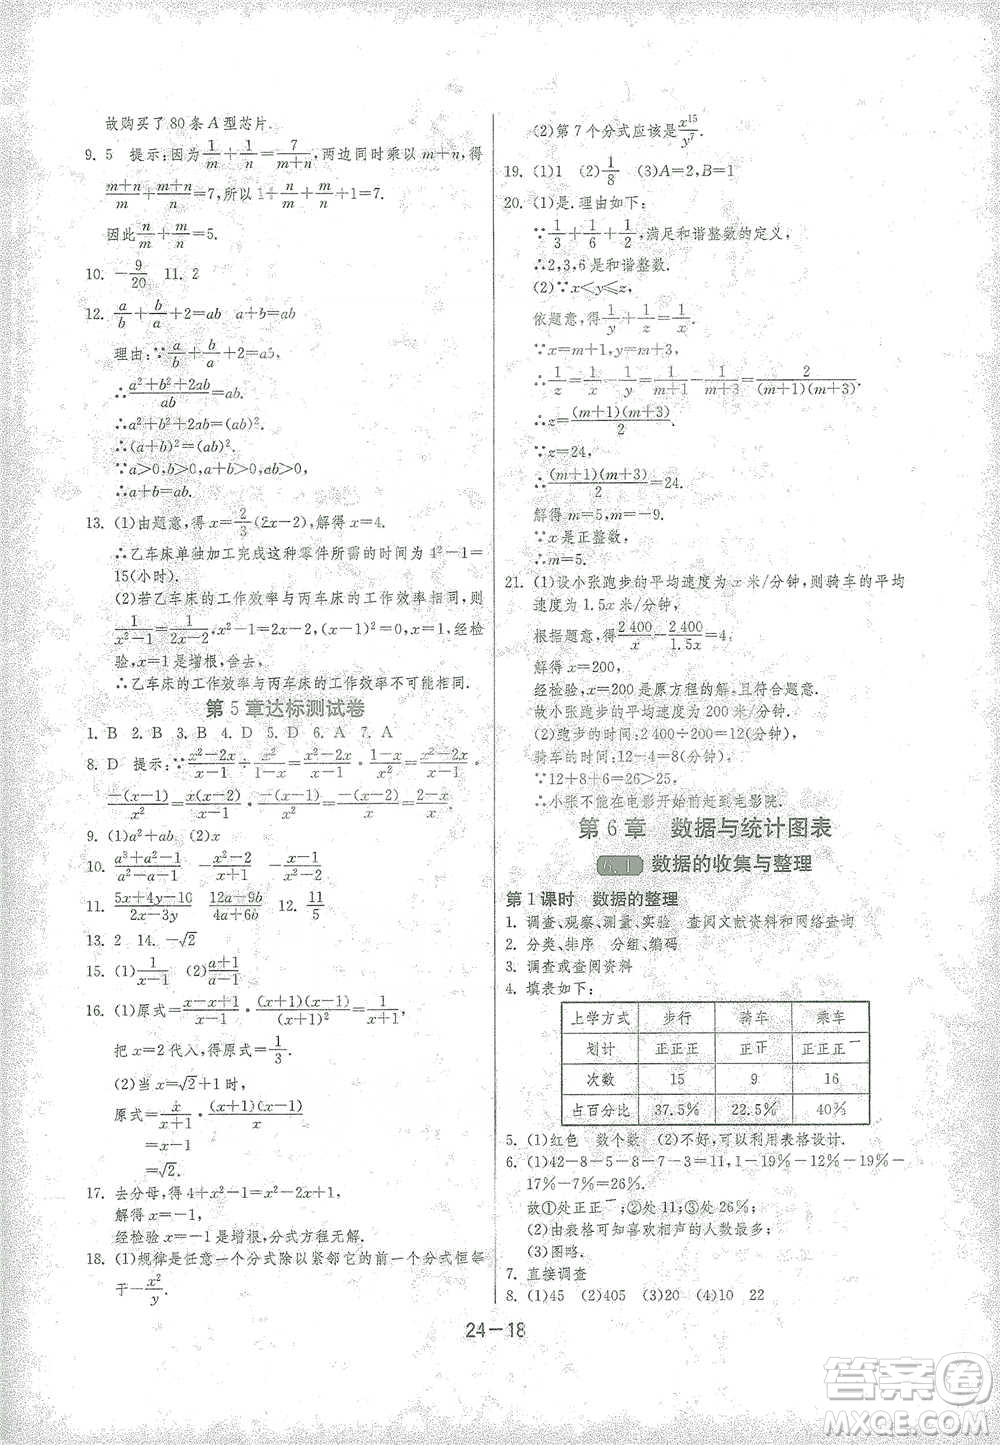 故购买了80条A型芯片.
9. 5 提示:因为1/m+1/n=7/(m+n),两边同时乘以m+n,得
(m+n)/m+(m+n)/n=7,所以1+n/m+m/n+1=7.
因此n/m+m/n=5.
10. -9/20 11. 2
12. a/b+b/a+2=ab a+b=ab
理由:∵a/b+b/a+2=ab,
∴(a²+b²+2ab)/ab=ab.
∴a²+b²+2ab=(ab)².
∴(a+b)²=(ab)².
∵a>0,b>0,a+b>0,ab>0,
∴a+b=ab.
13. (1)由题意,得x=2/3(2x-2),解得x=4.
∴乙车床单独加工完成这种零件所需的时间为4²-1=
15(小时).
(2)若乙车床的工作效率与丙车床的工作效率相同,则
1/(x²-1)=1/(2x-2),x²-1=2x-2,(x-1)²=0,x=1,经检
验,x=1是增根,舍去,
∴乙车床的工作效率与丙车床的工作效率不可能相同.
第5章达标测试卷
1. B 2. B 3. B 4. D 5. D 6. A 7. A
8. D 提示:∵(x²-2x)/(x-1)÷x²/(1-x)=(x²-2x)/(x-1)·(1-x)/x²=(x²-2x)/(x-1)·
-(x-1)/x²=x(x-2)/(x-1)·-(x-1)/x²=-(x-2)/x=(2-x)/x.
9. (1)a²+ab (2)x
10. (a³+a²-1)/(a²-a+1) -(x²-x+1)/(x²-2x-1)
11. (5x+4y-10)/(2x-3y) (12a+9b)/(4a+6b) 12. 11/5
13. 2 14. -√2
15. (1)1/(x-1) (2)(a+1)/(a-1)
16. (1)原式=(x-x+1)/(x-1)·(x+1)(x-1)/(x+1)²=1/(x+1),
把x=2代入,得原式=1/3.
(2)当x=√2+1时,
原式=x/(x+1)·(x+1)(x-1)/x
=x-1
=√2.
17. 去分母,得4+x²-1=x²-2x+1,
解得x=-1,
经检验x=-1是增根,分式方程无解.
18. (1)规律是任意一个分式除以紧邻它的前一个分式恒等
于-x²/y.
(2)第7个分式应该是x¹⁵/y⁷.
19. (1)1 (2)1/8 (3)A=2,B=1
20. (1)是.理由如下:
∵1/3+1/6=1/2,满足和谐整数的定义,
∴2,3,6是和谐整数.
(2)∵x<y≤z,
依题意,得1/y+1/z=1/x.
∵x=m+1,y=m+3,
∴1/z=1/x-1/y=1/(m+1)-1/(m+3)=2/((m+1)(m+3)).
∴z=(m+1)(m+3)/2.
∵z=24,
∴(m+1)(m+3)/2=24.
解得m=5,m=-9.
∵x是正整数,
∴m=5.
21. (1)设小张跑步的平均速度为x米/分钟,则骑车的平均
速度为1.5x米/分钟,
根据题意,得2400/x-2400/1.5x=4,
解得x=200,
经检验,x=200是原方程的解,且符合题意.
故小张跑步的平均速度为200米/分钟.
(2)跑步的时间:2400÷200=12(分钟),
骑车的时间:12-4=8(分钟),
∵12+8+6=26>25,
∴小张不能在电影开始前赶到电影院.
第6章 数据与统计图表
6.1 数据的收集与整理
第1课时 数据的整理
1. 调查、观察、测量、实验 查阅文献资料和网络查询
2. 分类、排序 分组、编码
3. 调查或查阅资料
4. 填表如下:
上学方式 步行 骑车 乘车
划计 正正正 正正 正正正一
次数 15 9 16
占百分比 37.5% 22.5% 40%
5. (1)红色 数个数 (2)不好,可以利用表格设计.
6. (1)42-8-5-15-3=11,1-19%-12%-36%-
17%-7%=26%.
故①处正正一;②处11;③处26%.
(2)由表格可知喜欢相声的人数最多.
(3)图略.
7. 直接调查
8. (1)45 (2)405 (3)20 (4)10 22
24-18
答案圈
MXQE.COM